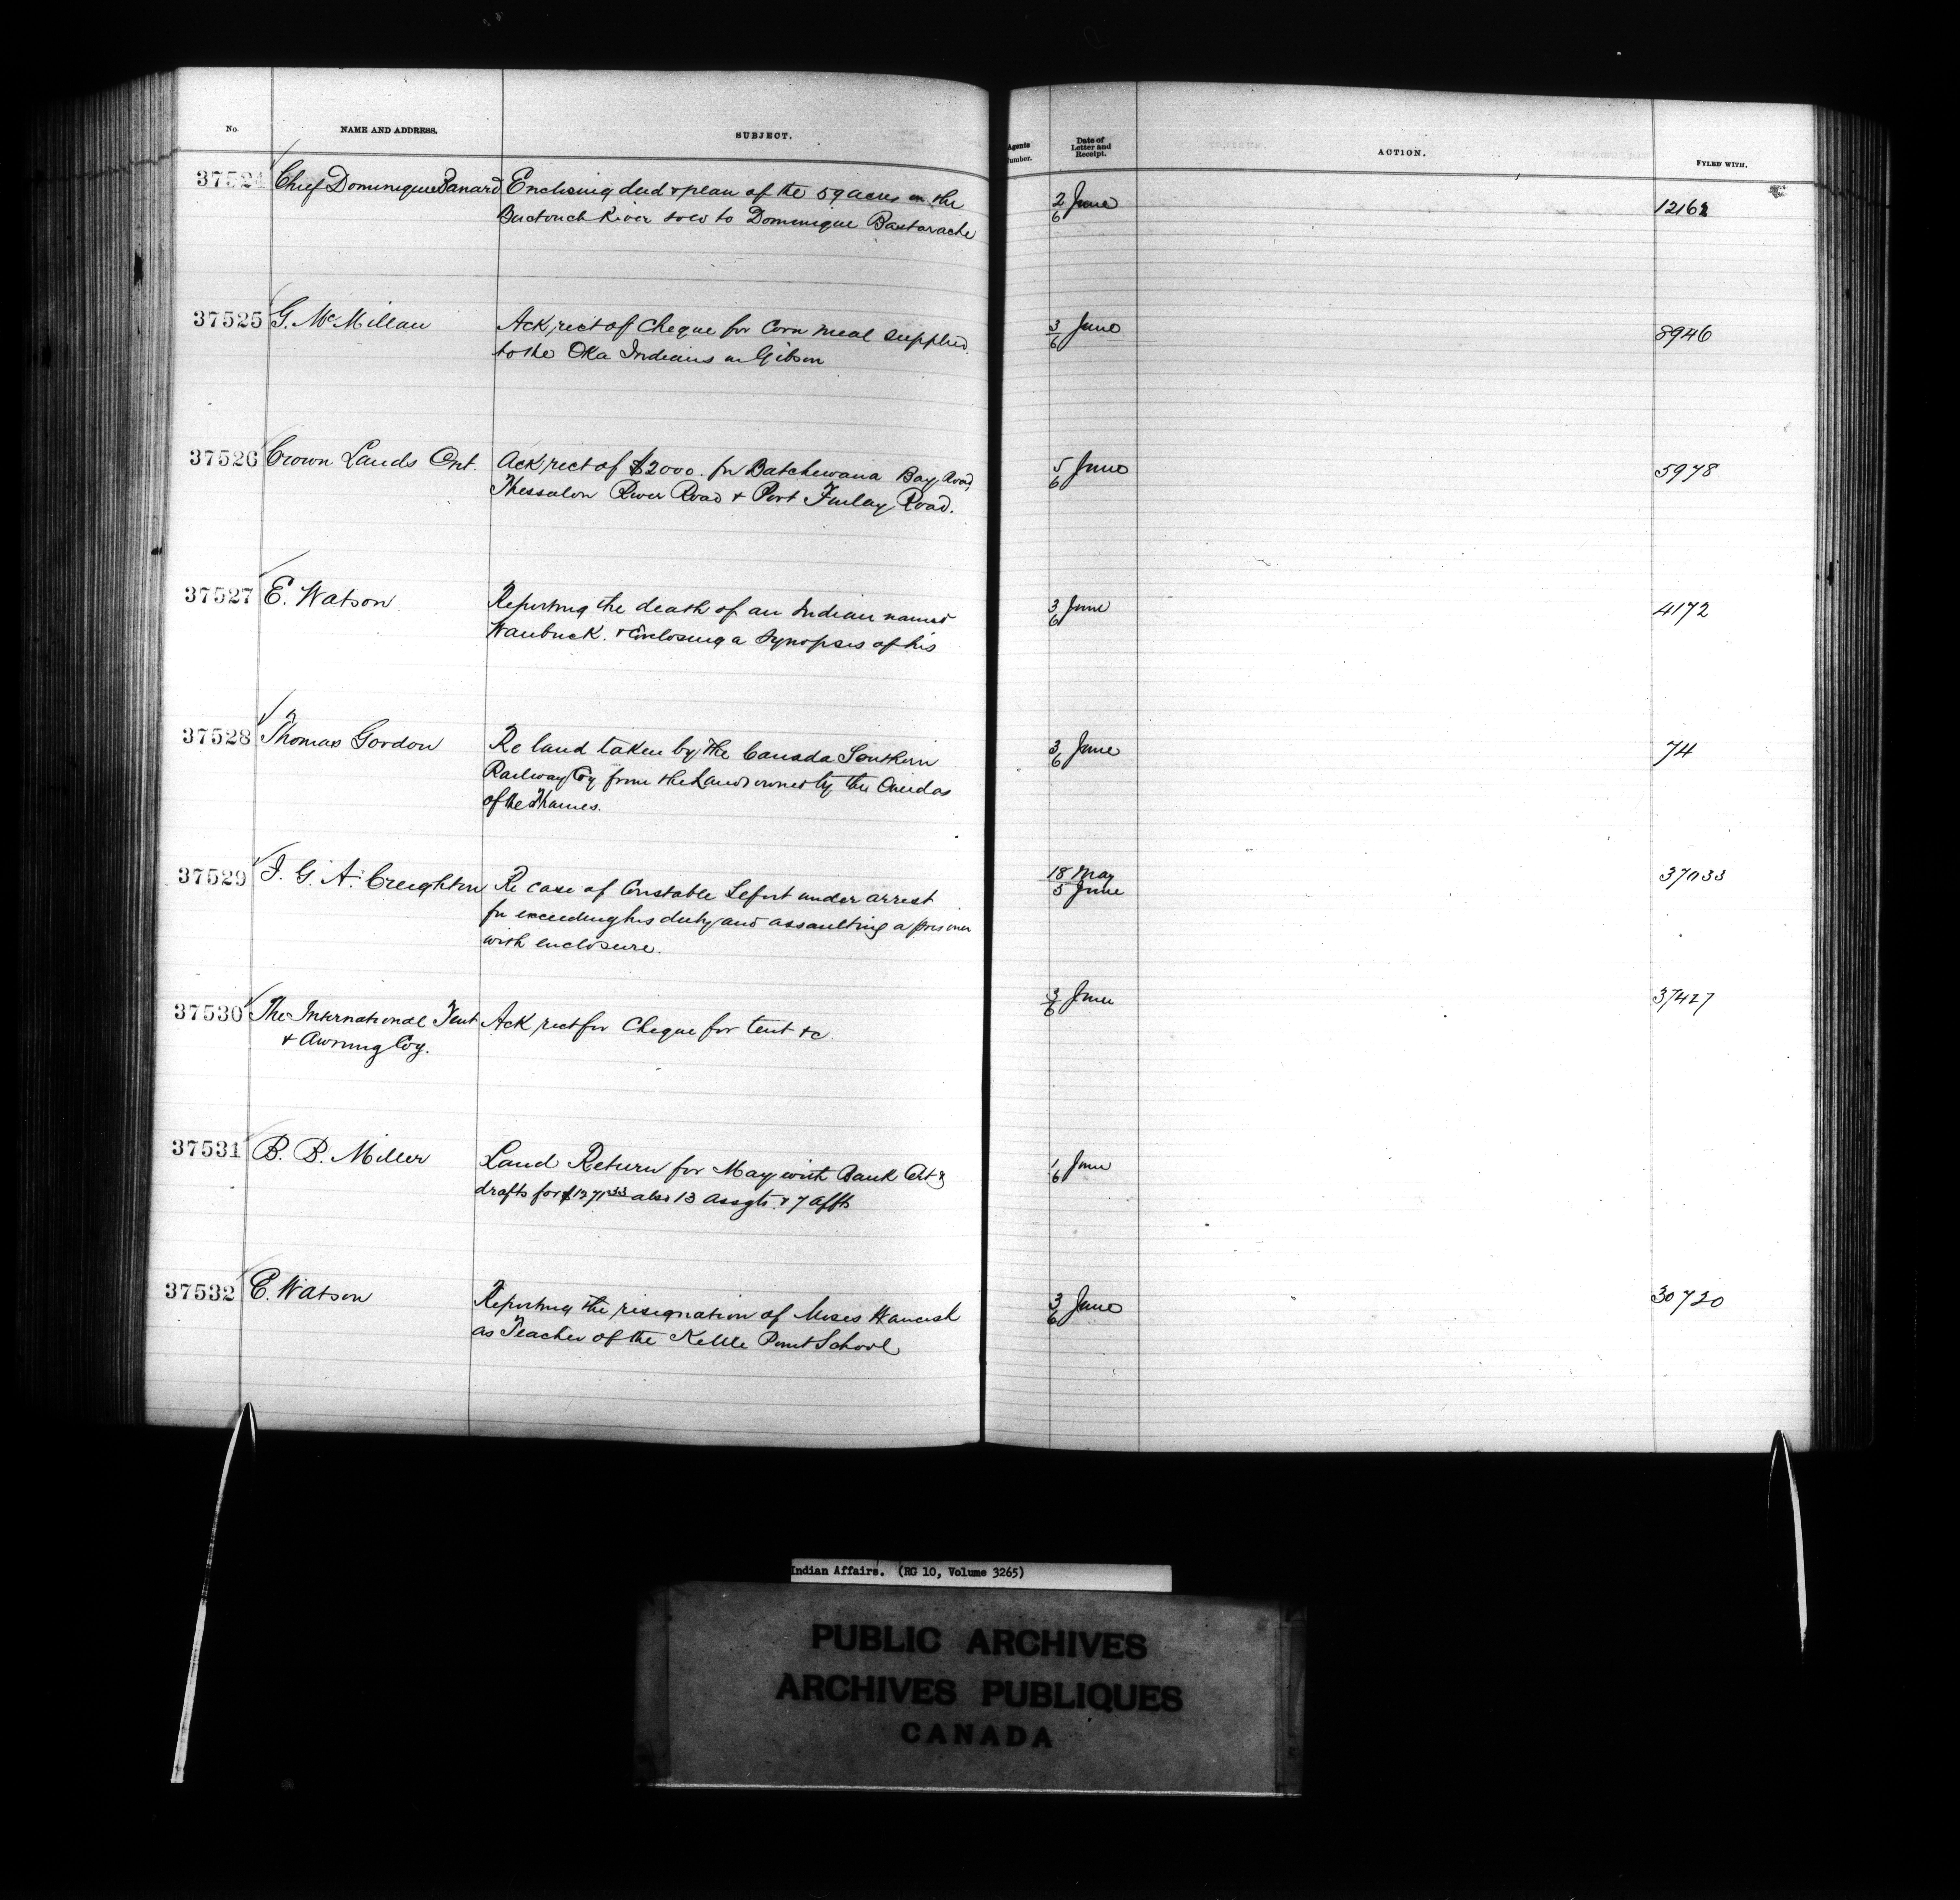 No. NAME AND ADDRESS. SUBJECT. Agents Number. Date of Letter and Receipt. ACTION. FYLED WITH.
37524 Chief Dominique Panard Enclosing deed & plan of the 59 acres on the 2/6 June 12162
Buctouch River sold to Dominique Bastarache
37525 G. McMillan Ack rect of Cheque for Corn meal supplied 3/6 June 8946
to the Oka Indians in Gibson
37526 Crown Lands Ont. Ack rect of $2000. for Batchewana Bay Road, 5/6 June 5978
Thessalon River Road & Port Finlay Road.
37527 E. Watson Reporting the death of an Indian named 3/6 June 4172
Waubuck. & Enclosing a Synopsis of his
37528 Thomas Gordon Re land taken by the Canada Southern 3/6 June 74
Railway Coy from the Lands owned by the Oneidas
of the Thames.
37529 J. G. A. Creighton Re case of Constable Lefort under arrest 18 May 37033
for exceeding his duty and assaulting a prisoner 5 June
with enclosure.
37530 The International Tent Ack rect for Cheque for tent &c. 3/6 June 37427
& Awning Coy.
37531 B. B. Miller Land Return for May with Bank Cert & 1/6 June
drafts for $1371.33 also 13 Assgts. & 7 Affts
37532 E. Watson Reporting the resignation of Moses 3/6 June 30720
as Teacher of the Kettle Point School
Indian Affairs. (RG 10, Volume 3265)
PUBLIC ARCHIVES
ARCHIVES PUBLIQUES
CANADA